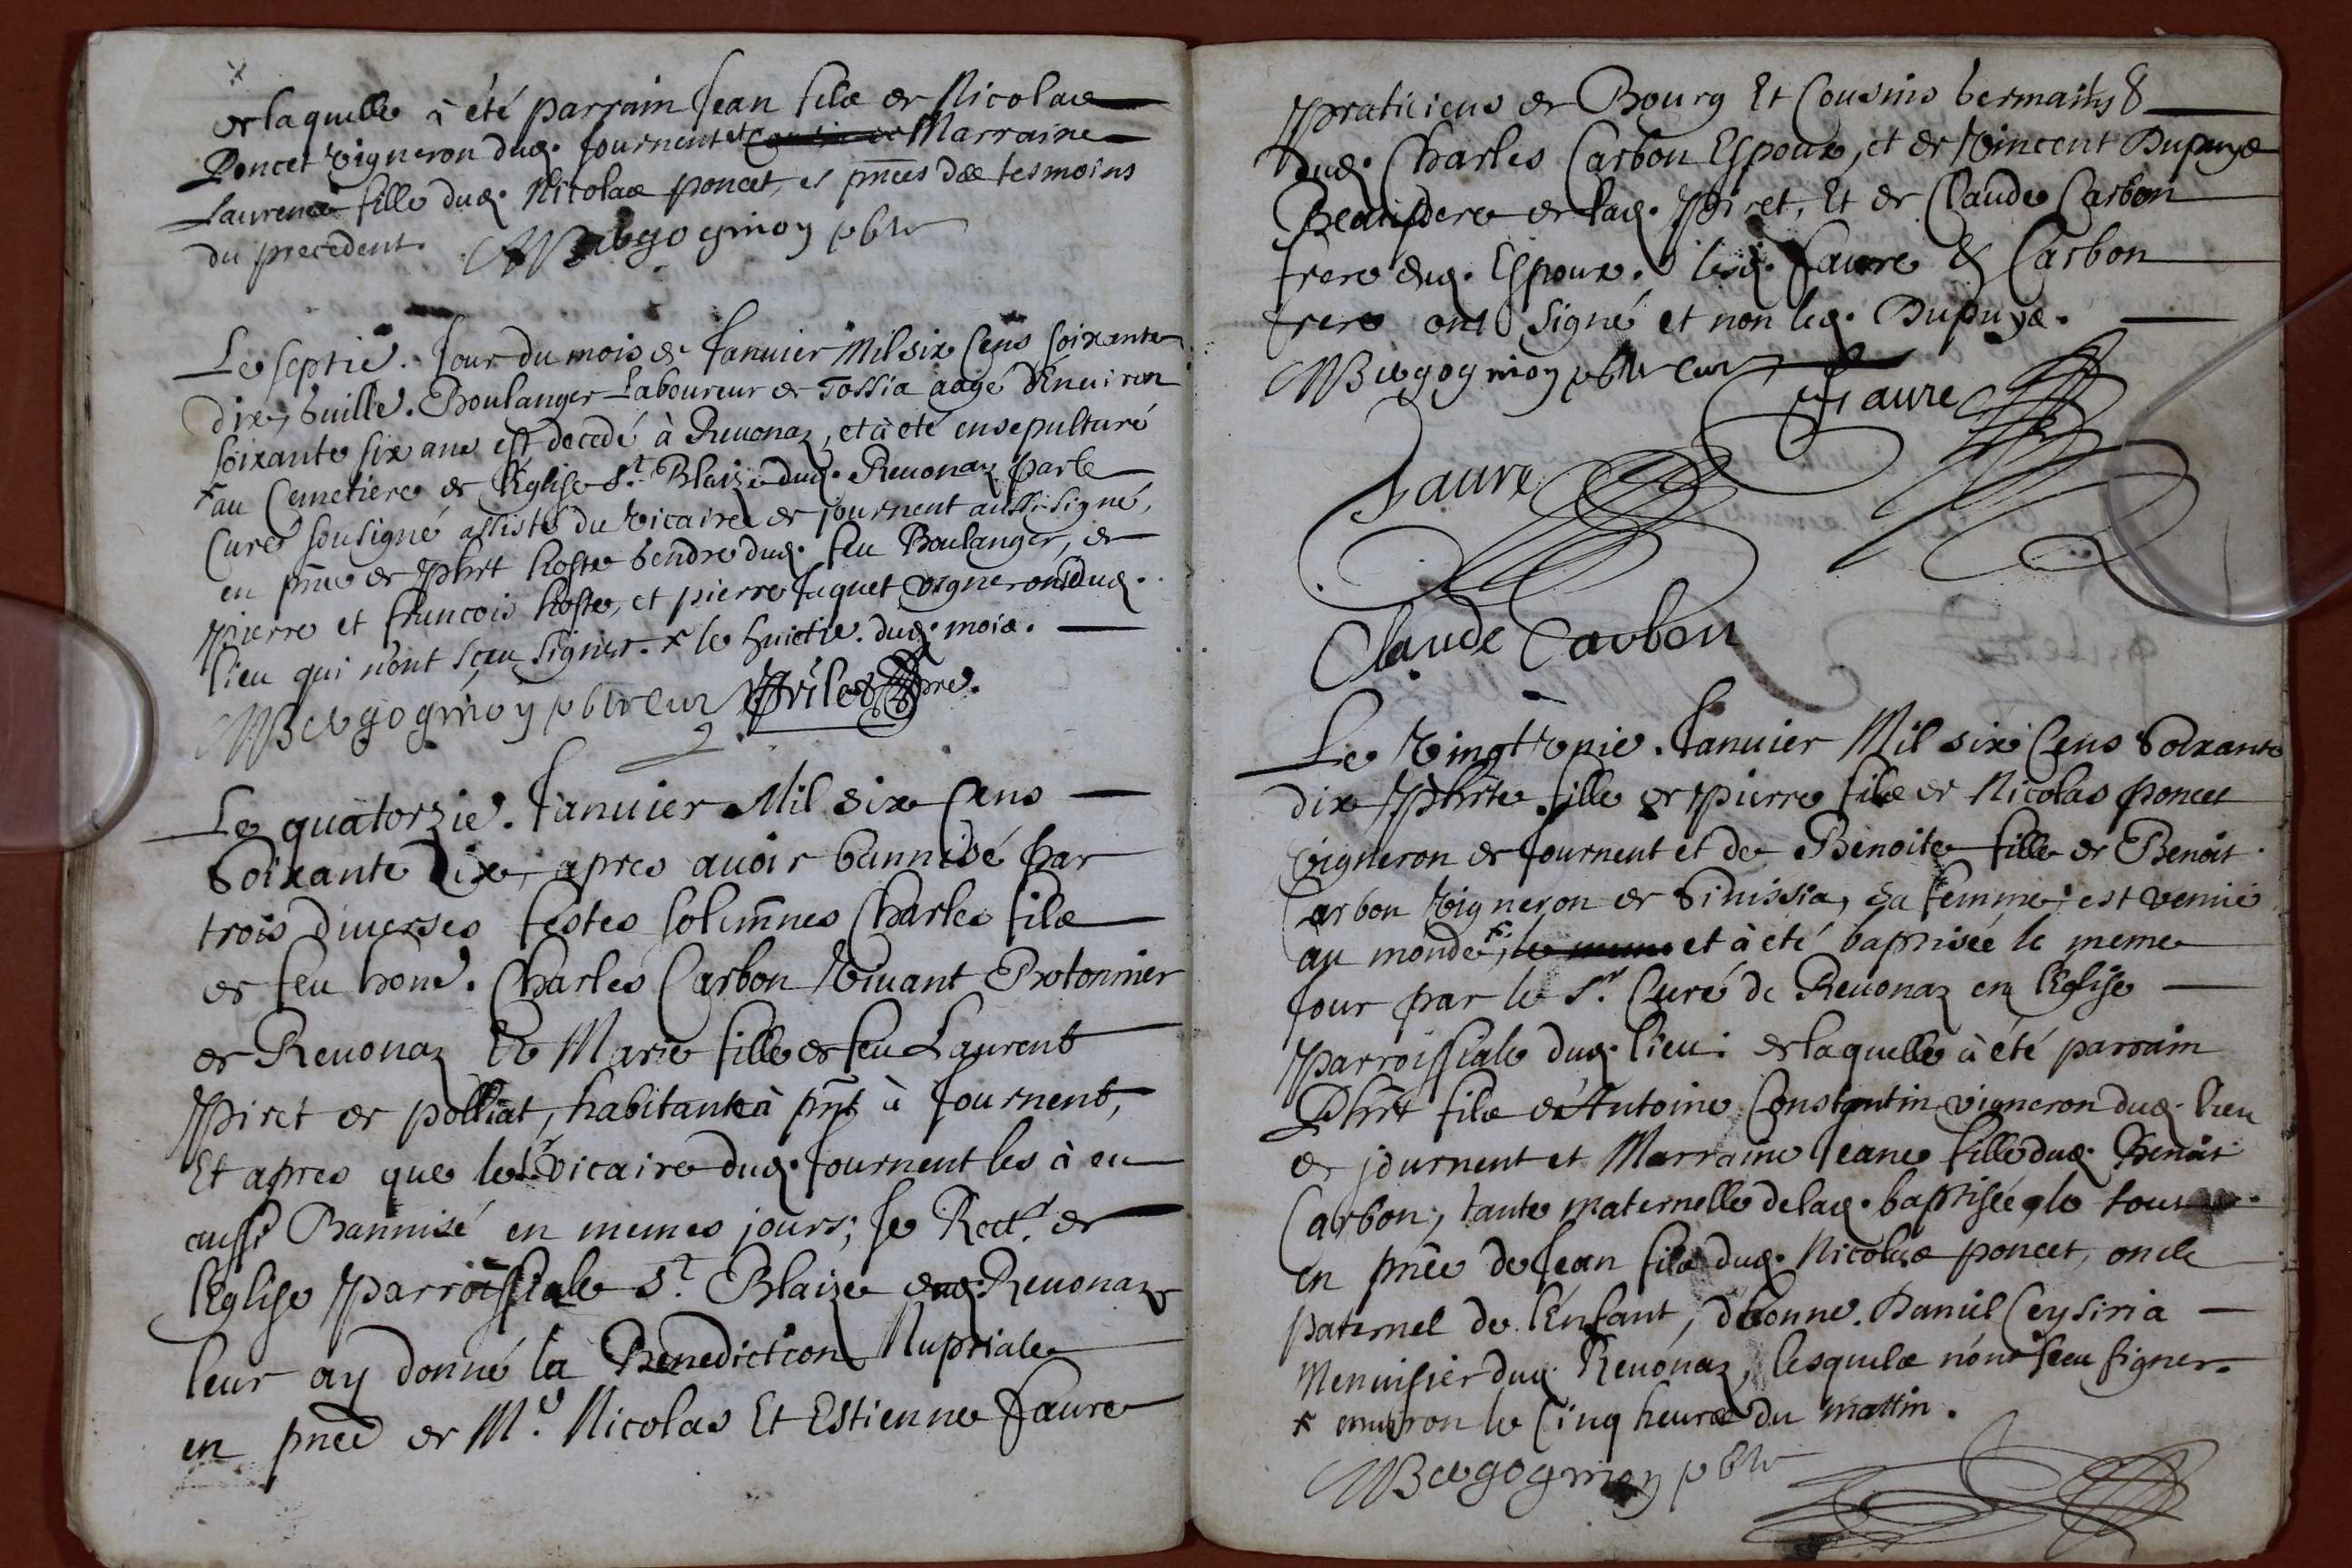 de laquelle à été parrain Jean fils de Nicolas
Poncet vigneron dud. Journent et Marraine
Laurence fille dud. Nicolas poncet, es pnces des tesmoins
du precedent.
Le septie. Jour du mois de Januier Mil six Cens soixante
dix, Boulanger Laboureur de Tossia aagé d'Enuiron
soixante six ans est decedé à Reuonaz, et à été ensepulturé
* au Cemetiere de l'Eglise St. Blaize dud. Reuonaz par le
Curé sousigné assisté du vicaire de journent aussi signé,
en pnce de Phrt hoste Gendre dud. feu Boulanger, de
pierre et francois hoste, et pierre Jaquet vignerons dud.
lieu qui n'ont sçeu signer. * le huictie. dud. mois.
Le quatorzie. Januier Mil six Cens
Soixante Dix, apres auoir bannisé par
trois diuerses festes solemnes Charles fils
de feu hone. Charles Carbon viuant Botonnier
de Reuonaz Et Marie fille de feu Laurent
Piret de polliat, habitante à pnt à Journent,
Et apres que le Sr vicaire dud. Journent les à eu
aussi Bannisé en memes jours; Je Rectr. de
l'Eglise Parroissiale St. Blaize dud. Reuonaz
leur ay donné la Benediction Nuptiale
en pnce de Me. Nicolas Et Estienne Faure
praticiens de Bourg Et Cousins Germains
dud. Charles Carbon Espoux, et de Vincent Dupuys
Beaupere de lad. Piret, Et de Claude Carbon
frere dud. Espoux. lesd. Faure & Carbon
frere ont signé et non led. Dupuys.
Faure
Faure
Claude Carbon
Le Vingt vnie. Januier Mil six Cens Soixante
dix Phrte fille de Pierre fils de Nicolas poncet
vigneron de Journent et de Benoite fille de Benoit
Carbon vigneron de Sinissia, sa femme, est venue
au monde*, le meme et à été baptisée le meme
Jour par le Sr. Curé de Reuonaz en l'Eglise
Parroissiale dud. lieu: de laquelle à été parrain
Phrt fils d'Antoine Constantin vigneron dud. lieu
de journent et Marraine Jeane fille dud. Benoit
Carbon, tante maternelle de lad. baptisée, le tout
en pnce de Jean fils dud. Nicolas poncet, oncle
paternel de l'Enfant, d'honne. Daniel Ceysiria
Menuisier dud. Reuonaz, lesquels n'ont sceu signer.
* enuiron le Cinq heures du mattin.